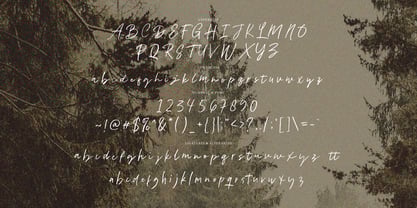 UPPERCASE
ABCDEFGHIJKLMNO
PQRSTUVWXYZ
abcdefghijklmnopqrstuvwxyz
1234567890
~!@#$%&*()_+{}|:"<>?,./;'[]\=-`
LIGATURES & ALTERNATES
abcdefghijklmnopqrstuvwxyz tt
abcdefghijklmnopqrstuvwxyz